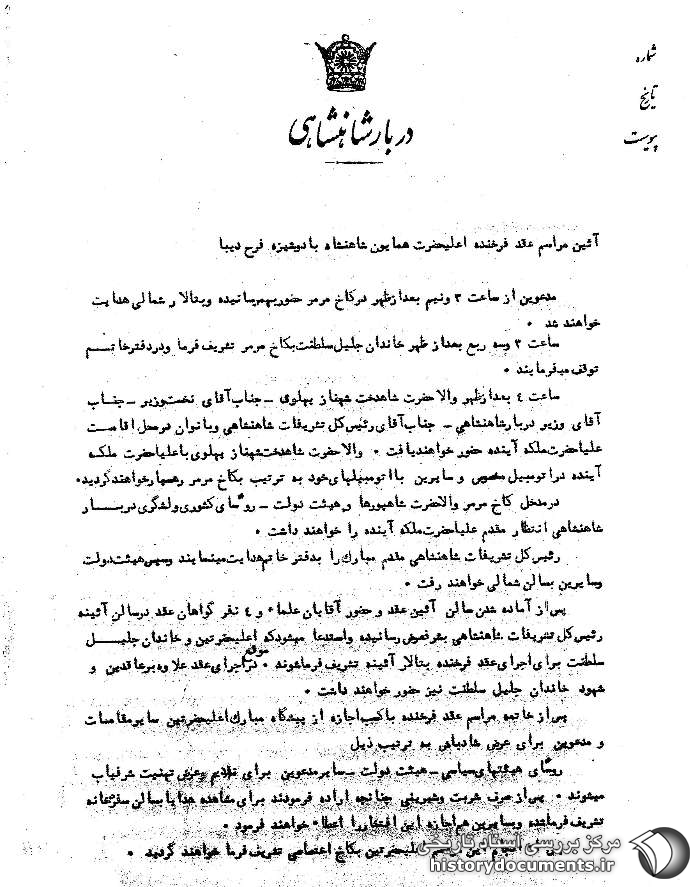 شماره
تاریخ
پیوست
دربار شاهنشاهی
آئین مراسم عقد فرخنده اعلیحضرت همایون شاهنشاه با دوشیزه فرح دیبا
مدعوین از ساعت ۳ ونیم بعدازظهر درکاخ مرمر حضوربهمرسانیده وبتالار شمالی هدایت
خواهند شد ۰
ساعت ۳ وسه ربع بعداز ظهر خاندان جلیل سلطنت بکاخ مرمر تشریف فرما ودردفترخاتم
توقف میفرمایند ۰
ساعت ٤ بعدازظهر والاحضرت شاهدخت شهناز پهلوی - جناب آقای نخست وزیر - جناب
آقای وزیر دربارشاهنشاهی - جناب آقای رئیس کل تشریفات شاهنشاهی وبانوان درمحل اقامت
علیاحضرت ملکه آینده حضور خواهندیافت ۰ والاحضرت شاهدخت شهناز پهلوی باعلیاحضرت ملکه
آینده دراتومبیل مخصوص و سایرین بااتومبیلهای خود به ترتیب بکاخ مرمر رهسپارخواهندگردید۰
درمدخل کاخ مرمر والاحضرت شاهپورها و هیئت دولت - روسای کشوری ولشگری دربار
شاهنشاهی انتظار مقدم علیاحضرت ملکه آینده را خواهند داشت ۰
رئیس کل تشریفات شاهنشاهی مقدم مبارك را بدفتر خاتم هدایت مینمایند وسپس هیئت دولت
وسایرین بسالن شمالی خواهند رفت ۰
پس از آماده شدن سالن آئین عقد و حضور آقایان علماء و ٤ نفر گواهان عقد درسالن آئینه
رئیس کل تشریفات شاهنشاهی بعرض رسانیده واستدعا میشود که اعلیحضرتین و خاندان جلیل
سلطنت برای اجرای عقد فرخنده بتالار آئینه تشریف فرماشوند ۰ در موقع اجرای عقد علاوه برعاقدین و
شهود خاندان جلیل سلطنت نیز حضور خواهند داشت ۰
پس از خاتمه مراسم عقد فرخنده باکسب اجازه از پیشگاه مبارك اعلیحضرتین سایرمقامات
و مدعوین برای عرض شادباش به ترتیب ذیل
روسای هیئتهای سیاسی - هیئت دولت - سایر مدعوین برای تقدیم وعرض تهنیت شرفیاب
میشوند ۰ پس از صرف شربت وشیرینی چنانچه اراده فرمودند برای مشاهده هدایا بسالن سفرخانه
تشریف فرماشده وسایرین هم اجازه این افتخار را اعطاء خواهند فرمود ۰
این مراسم اعلیحضرتین بکاخ اختصاصی تشریف فرما خواهند گردید ۰
مرکز بررسی اسناد تاریخی
historydocuments.ir